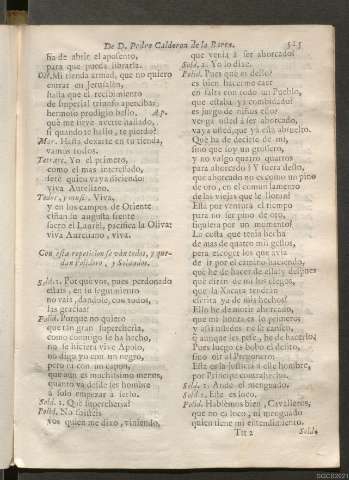 De D. Pedro Calderon de la Barca. 525
ha de abrir el aposento,
para que pueda librarla.
Dec. Mi tienda armad, que no quiero
entrar en Jerusalen,
hasta que el recibimiento
de Imperial triunfo aperciban,
hermoso prodigio bello, Ap.
que me lleve averte hallado,
si quando te hallo, te pierdo?
Mar. Hasta dexarte en tu tienda,
vamos todos.
Tetrarc. Yo el primero,
como el mas interessado,
seré quien vaya diciendo:
viva Aureliano.
Todos, y music. Viva,
y en los campos de Oriente
ciñan su augusta frente
sacro el Laurel, pacifica la Oliva;
viva Aureliano, viva.
Con esta repeticion se van todos, y que-
dan Polidoro, y Soldados.
Sold. 1. Por qué vos, pues perdonado
estais, en su seguimiento
no vais, dandole, con todos,
las gracias?
Polid. Porque no quiero
que tan gran supercheria,
como conmigo se ha hecho,
no se hiciera vive Apolo,
no digo yo con un negro,
pero ni con un capon,
que aun es muchissimo menos,
quanto va desde ser hombre
á solo empezar á serlo.
Sold. 1. Qué supercheria?
Polid. No fuisteis
vos quien me dixo, viniendo,
que venia á ser ahorcado?
Sold. 1. Yo lo dixe.
Polid. Pues qué es dello?
es bien hacerme caer
en falta con todo un Pueblo,
que estaba ya combidado?
es juego de niños esto?
venga usted á ser ahorcado,
vaya usted, que yá está absuelto.
Qué ha de decirse de mi,
sino que soy un grossero,
y no valgo quatro quartos
para ahorcado? Y fuera desto,
que ahorcado no es como un pino
de oro, en el comun lamento
de las viejas que le lloran?
Està por ventura el tiempo
para no ser pino de oro,
siquiera por un momento?
La costa que tenia hecha
de mas de quatro mil gestos,
para escoger los que avia
de ir por el camino haciendo,
qué he de hacer de ella? y despues
qué diran de mi los ciegos,
que la Xacara tendràn
escrita ya de mis hechos?
Ello he de morir ahorcado,
que mi honra es lo primero;
y assi ustedes no se cansen,
que aunque les pese, he de hacerlo;
Pues luego es bobo el delito,
sino oir al Pregonero:
Esta es la justicia á este hombre,
por Principe contrahecho.
Sold. 2. Ande el menguado.
Sold. 1. Este es loco.
Polid. Hablemos bien, Cavalleros,
que no es loco, ni menguado
quien tiene mi entendimiento.
Ttt 2 Sold.